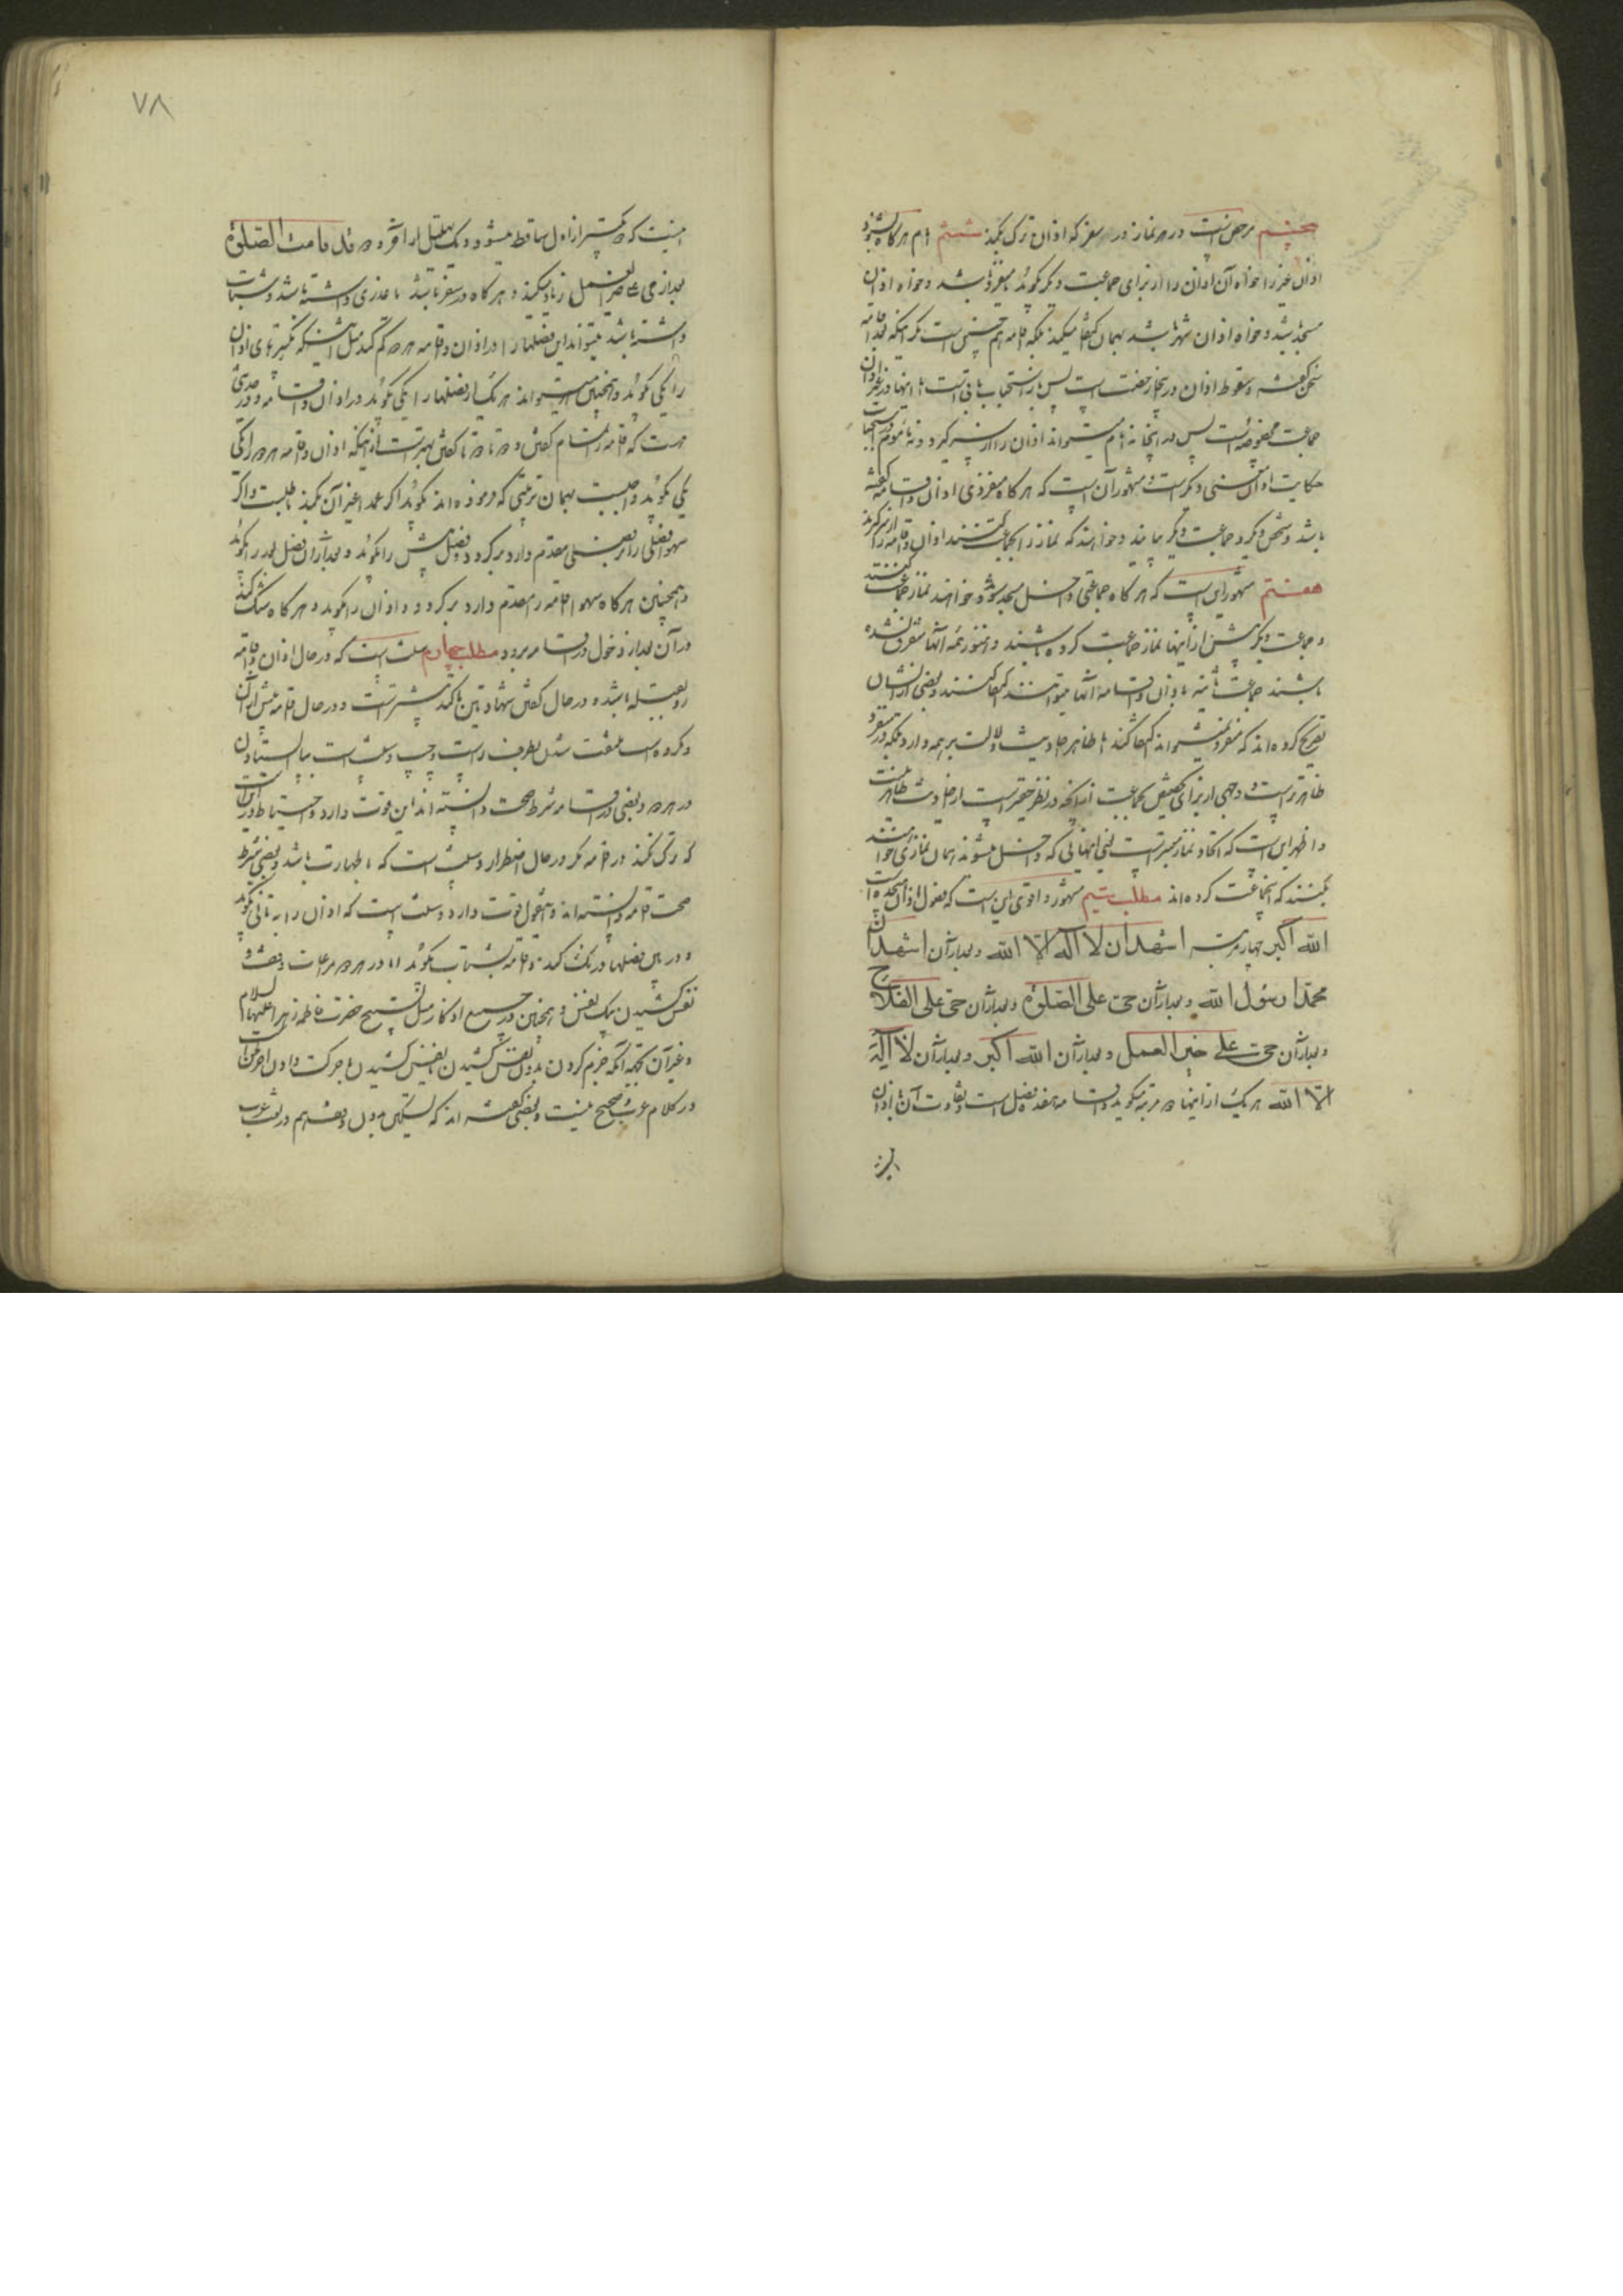 پنجم مرخص است در هر نماز در سفر که اذان ترک بکند ششم امام هرگاه بشنود
اذان غیر را خواه آن اذان را از برای جماعت دیگر گوید یا منفرد باشد و خواه اذان
مسجد باشد و خواه اذان شهر باشد بهمان اکتفا میکند بلکه اقامه هم چنین است مگر آنکه بعد اقامه
سخن گفته و سقوط اذان در اینجا رخصت است پس باز استحباب باقی است اما اینها در غیر اذان
جماعت است پس در اینجا نه امام میتواند اذان را از سر گیرد و نه ماموم
حکایت اذان سنی دیگر است و مشهور آن است که هرگاه منفردی اذان و اقامه گفته
باشد و شخص دیگر و جماعت دیگر بیایند و خواهند که نماز را بجماعت کنند اذان و اقامه را از سر گیرند
هفتم مشهور این است که هرگاه جماعتی داخل مسجد شوند و خواهند نماز جماعت کنند
و جماعت دیگر پیش از اینها نماز جماعت کرده باشند و هنوز همه آنها متفرق نشده
باشند جماعت ثانیه باذان و اقامه آنها میتوانند اکتفا کنند و بعضی از ایشان
تصریح کرده‌اند که منفرد نمیتواند اکتفا کند اما ظاهر احادیث دلالت بر همه دارد بلکه در منفرد
ظاهرتر است و وجهی از برای تخصیص بجماعت آنچه در نظر حقیر است از احادیث ظاهر نیست
و اظهر این است که اتحاد نماز معتبر است یعنی اینهائی که داخل میشوند همان نمازی خواسته
بکنند که آنجماعت کرده‌اند مطلب سیم مشهور و اقوی این است که فصول اذان هیجده است
الله اکبر چهار مرتبه اشهد ان لا اله الا الله و بعد از آن اشهد ان
محمدا رسول الله و بعد از آن حی علی الصلوة و بعد از آن حی علی الفلاح
و بعد از آن حی علی خیر العمل و بعد از آن الله اکبر و بعد از آن لا اله
الا الله هر یک از اینها دو مرتبه میگوید و اقامه هفده فصل است و تفاوت آن با اذان
این
٧٨
اینست که دو تکبیر از اول ساقط میشود و یک تهلیل از آخر و دو قد قامت الصلوة
بعد از حی علی خیر العمل زیاد میکند و هرگاه در سفر باشد یا عذری داشته باشد و شتاب
داشته باشد میتواند این فصلها را در اذان و اقامه هر دو کم کند مثل اینکه تکبیرهای اذان
را یکی گوید و همچنین میتواند هر یک از فصلها را یکی گوید در اذان و اقامه و در حدیثی
هست که اقامه را تمام گفتن و دو تا دو تا گفتن بهتر است از اینکه اذان و اقامه هر دو را یکی
یکی گوید و واجبست بهمان ترتیبی که فرموده‌اند گوید اگر عمدا غیر آن بکند باطلست و اگر
سهوا فصلی را بر فصلی مقدم دارد برگردد و فصل پیش را گوید و بعد از آن فصل بعد را گوید
و همچنین هرگاه سهوا اقامه را مقدم دارد برگردد و اذان را گوید و هرگاه شک کند
در آن بعد از دخول در اقامه برود مطلب چهارم سنت است که در حال اذان و اقامه
رو بقبله باشد و در حال گفتن شهادتین تاکید بیشتر است و در حال اقامه بیش از آن
و مکروه است ملتفت شدن بطرف راست و چپ و سنت است با ایستادن
در هر دو و بعضی در اقامه شرط صحت دانسته‌اند این قوت دارد و احتیاط در این است
که ترک نکند در اقامه مگر در حال اضطرار و سنت است که با طهارت باشد و بعضی شرط
صحت اقامه دانسته‌اند و اینقول قوت دارد و سنت است که اذان را به تانی گوید
و در میان فصلها درنک کند و اقامه بشتاب گوید اما در هر دو مراعات وقف و
نفس کشیدن بیک نفس و همچنین در جمیع اذکار مثل تسبیح حضرت فاطمه زهرا علیها السلام
و غیر آن بجهة آنکه جزم کردن بدون نفس کشیدن یا نفس کشیدن با حرکت دادن آخر آن
در کلام عرب صحیح نیست و بعضی گفته‌اند که تسکین بدون وقف هم در لغت عرب